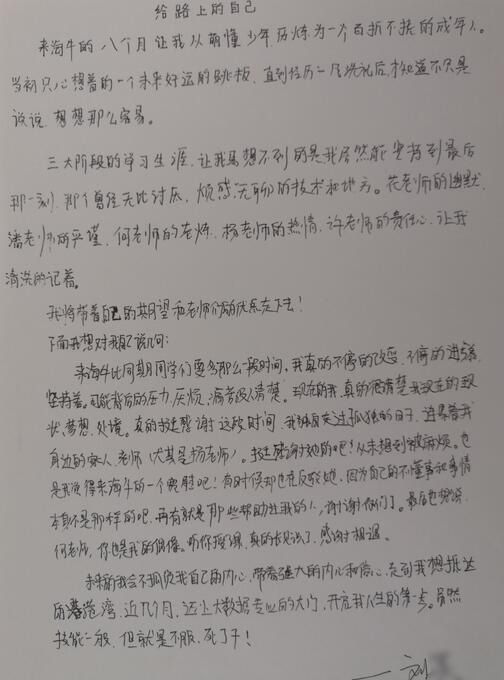 给路上的自己
来海牛的八个月让我从懵懂少年历炼为一个百折不挠的成年人。
当初只心想着的一个未来好运的跳板,直到经历一层洗礼后,才知道不只是
说说,想想那么容易。
三大阶段的学习生涯,让我马想不到的是我居然能坚持到最后
那一刻,那个曾经无比讨厌,烦感,无聊的技术和地方。花老师的幽默,
潘老师的严谨,何老师的老炼,杨老师的热情,许老师的责任心,让我
清洗的记着。
我将带着自己的期望和老师们的优点走下去!
下面我想对我自己说几句:
来海牛比同期同学们要多那么一段时间,我真的不停的改变,不停的进步着,
坚持着。可能背后的压力,厌烦,痛苦没人清楚。现在的我,真的很清楚我现在的现
状,梦想,处境。真的挺感谢这段时间,我独自度过孤独的日子,进果着我
身边的家人,老师(尤其是杨老师)。挺感谢她的吧!从未想到被麻烦。也
是我觉得来海牛的一个慰藉吧!有时候却也在反驳她,因为自己的不懂事和事情
本身不是那样的吧,再有就是那些帮助过我的人,谢谢你们了。最后想说,
何老师,你也是我的偶像。听你授课,真的长见识了,感谢相遇。
未来的我会不辜负我自己的内心,带着强大的内心和信心,走到我想抵达
的港湾,近几个月,迈上大数据专业的大门,开启我人生的第一步。虽然
技能一般,但就是不服,死了干!
——刘